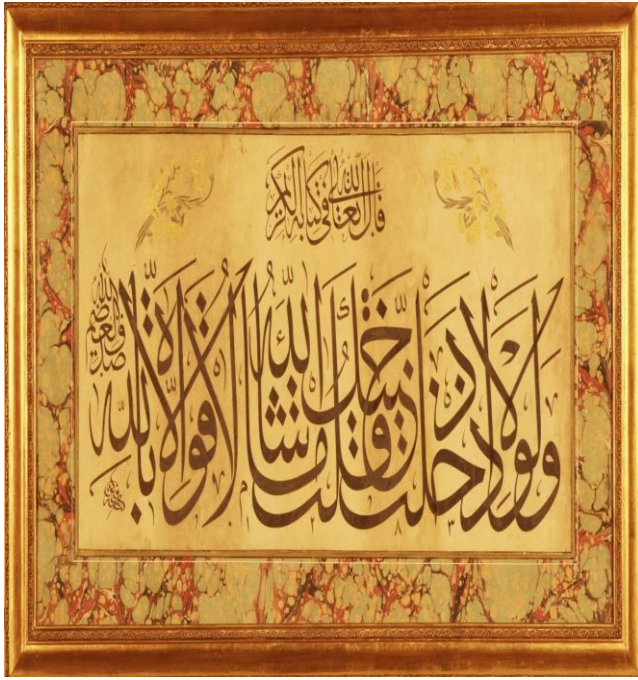 قال الله تعالى في كتابه الكريم
ولولا اذ دخلت جنتك قلت ما شاء الله لا قوة الا بالله
صدق الله العظيم
١٢٨٣